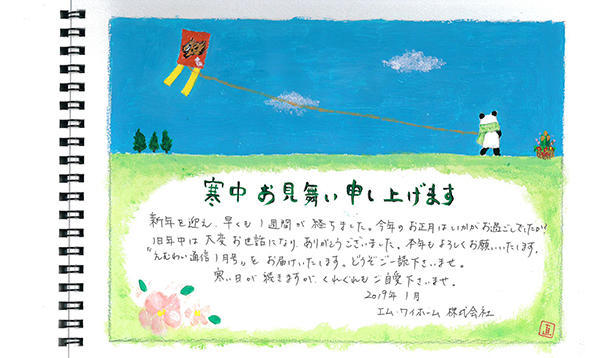 寒中お見舞い申し上げます
新年を迎え、早くも1週間が経ちました。今年のお正月はいかがお過ごしでしたか?
旧年中は大変お世話になりありがとうございました。本年もよろしくお願いいたします。
"えむわい通信1月号"をお届けいたします。どうぞご一読下さいませ。
寒い日が続きますが、くれぐれもご自愛下さいませ。
2019年1月
エム・ワイホーム株式会社